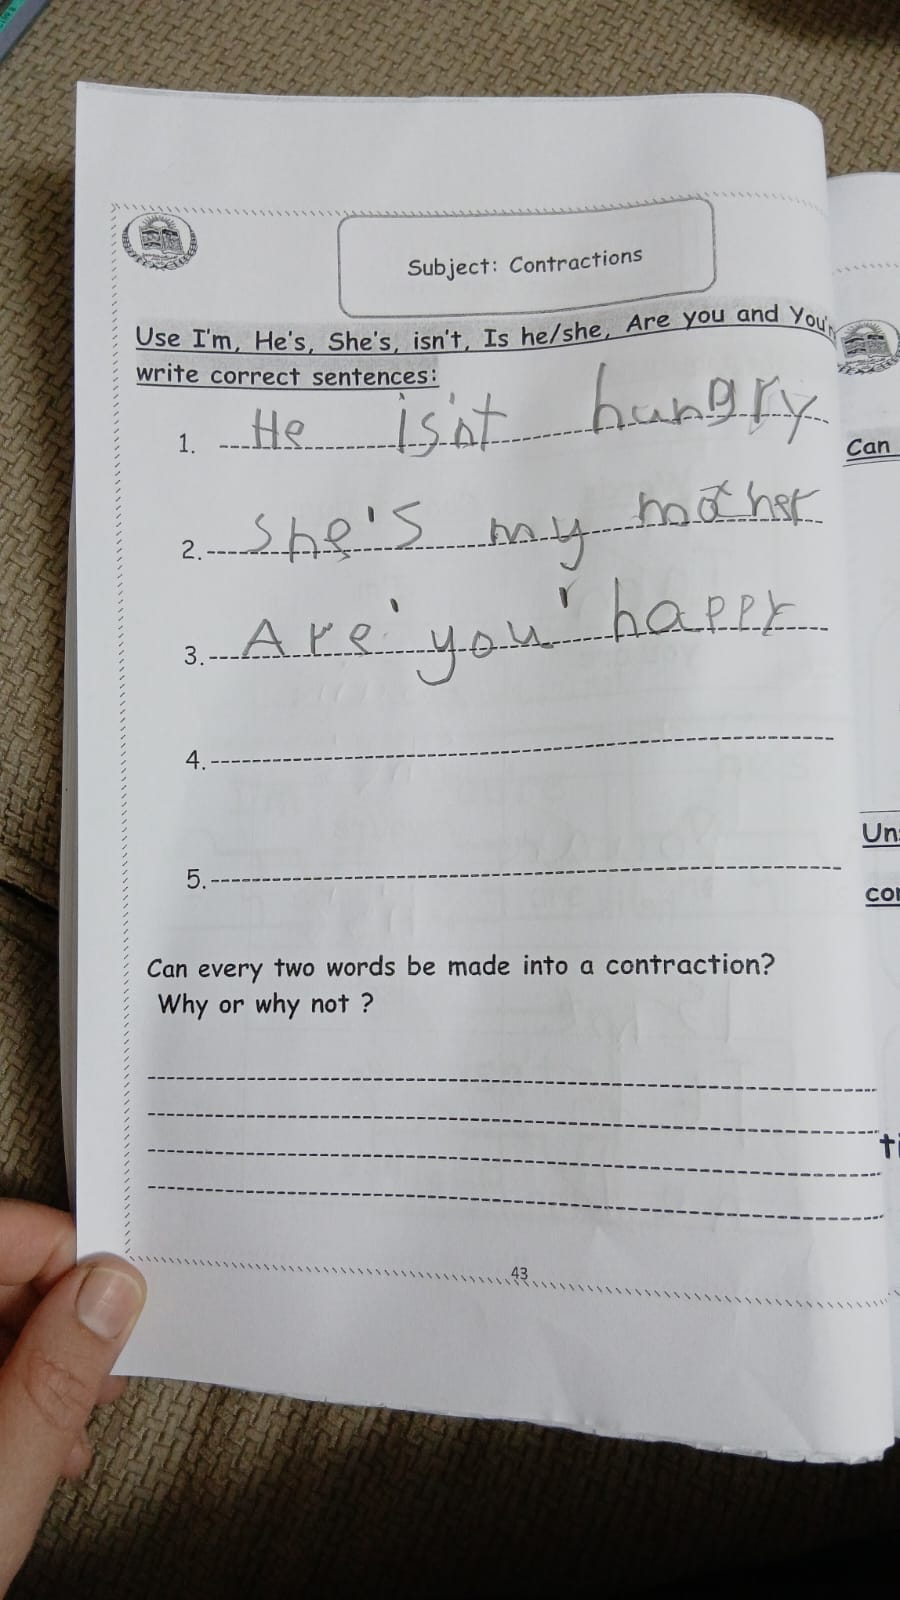 Subject: Contractions
Use I'm, He's, She's, isn't, Is he/she, Are you and You'r
write correct sentences:
1. He is'nt hungry
Can
2. She's my mother
3. Are' you' happy
4.
5.
Un
cor
Can every two words be made into a contraction?
Why or why not ?
ti
43